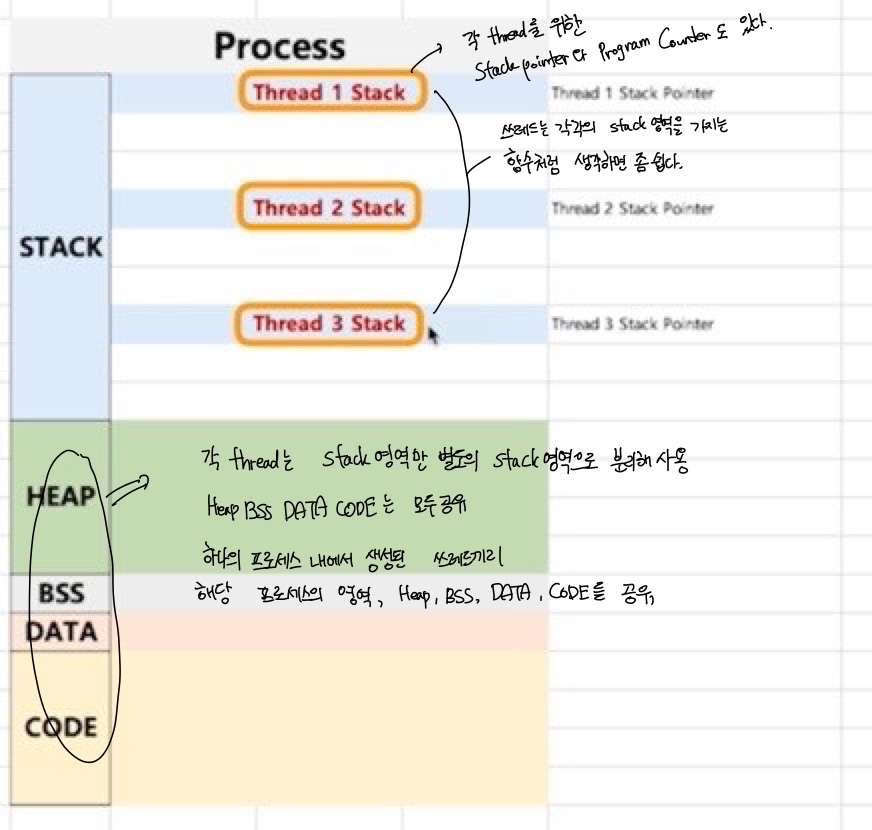 Process
각 thread를 위한
Stack pointer와 Program Counter도 있다.
Thread 1 Stack
Thread 1 Stack Pointer
쓰레드는 각각의 stack 영역을 가지는
함수처럼 생각하면 좀 쉽다.
Thread 2 Stack
Thread 2 Stack Pointer
STACK
Thread 3 Stack
Thread 3 Stack Pointer
각 thread는 stack 영역만 별도의 stack 영역으로 분리해 사용
HEAP
Heap BSS DATA CODE는 모두 공유
하나의 프로세스 내에서 생성된 쓰레드끼리
BSS
해당 프로세스의 영역, Heap, BSS, DATA, CODE를 공유,
DATA
CODE